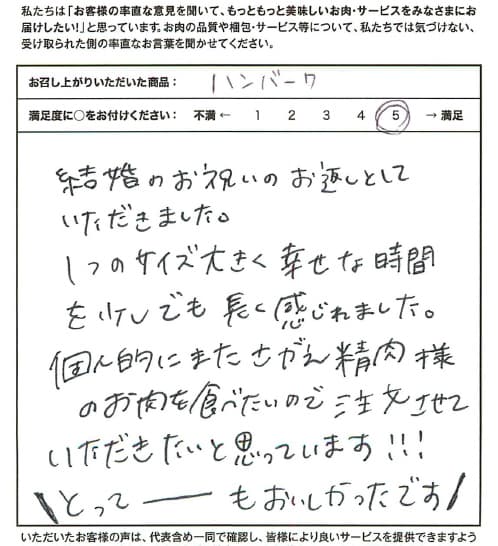 私たちは「お客様の率直な意見を聞いて、もっともっと美味しいお肉・サービスをみなさまにお
届けしたい!」と思っています。お肉の品質や梱包・サービス等について、私たちでは気づけない、
受け取られた側の率直なお言葉を聞かせてください。
お召し上がりいただいた商品： ハンバーク
満足度に○をお付けください： 不満 ← 1 2 3 4 5 → 満足
結婚のお祝いのお返しとして
いただきました。
1つのサイズ大きく幸せな時間
を少しでも長く感じれました。
個人的にまたさがえ精肉様
のお肉を食べたいので注文させて
いただきたいと思っています!!!
\とって――もおいしかったです/
いただいたお客様の声は、代表含め一同で確認し、皆様により良いサービスを提供できますよう